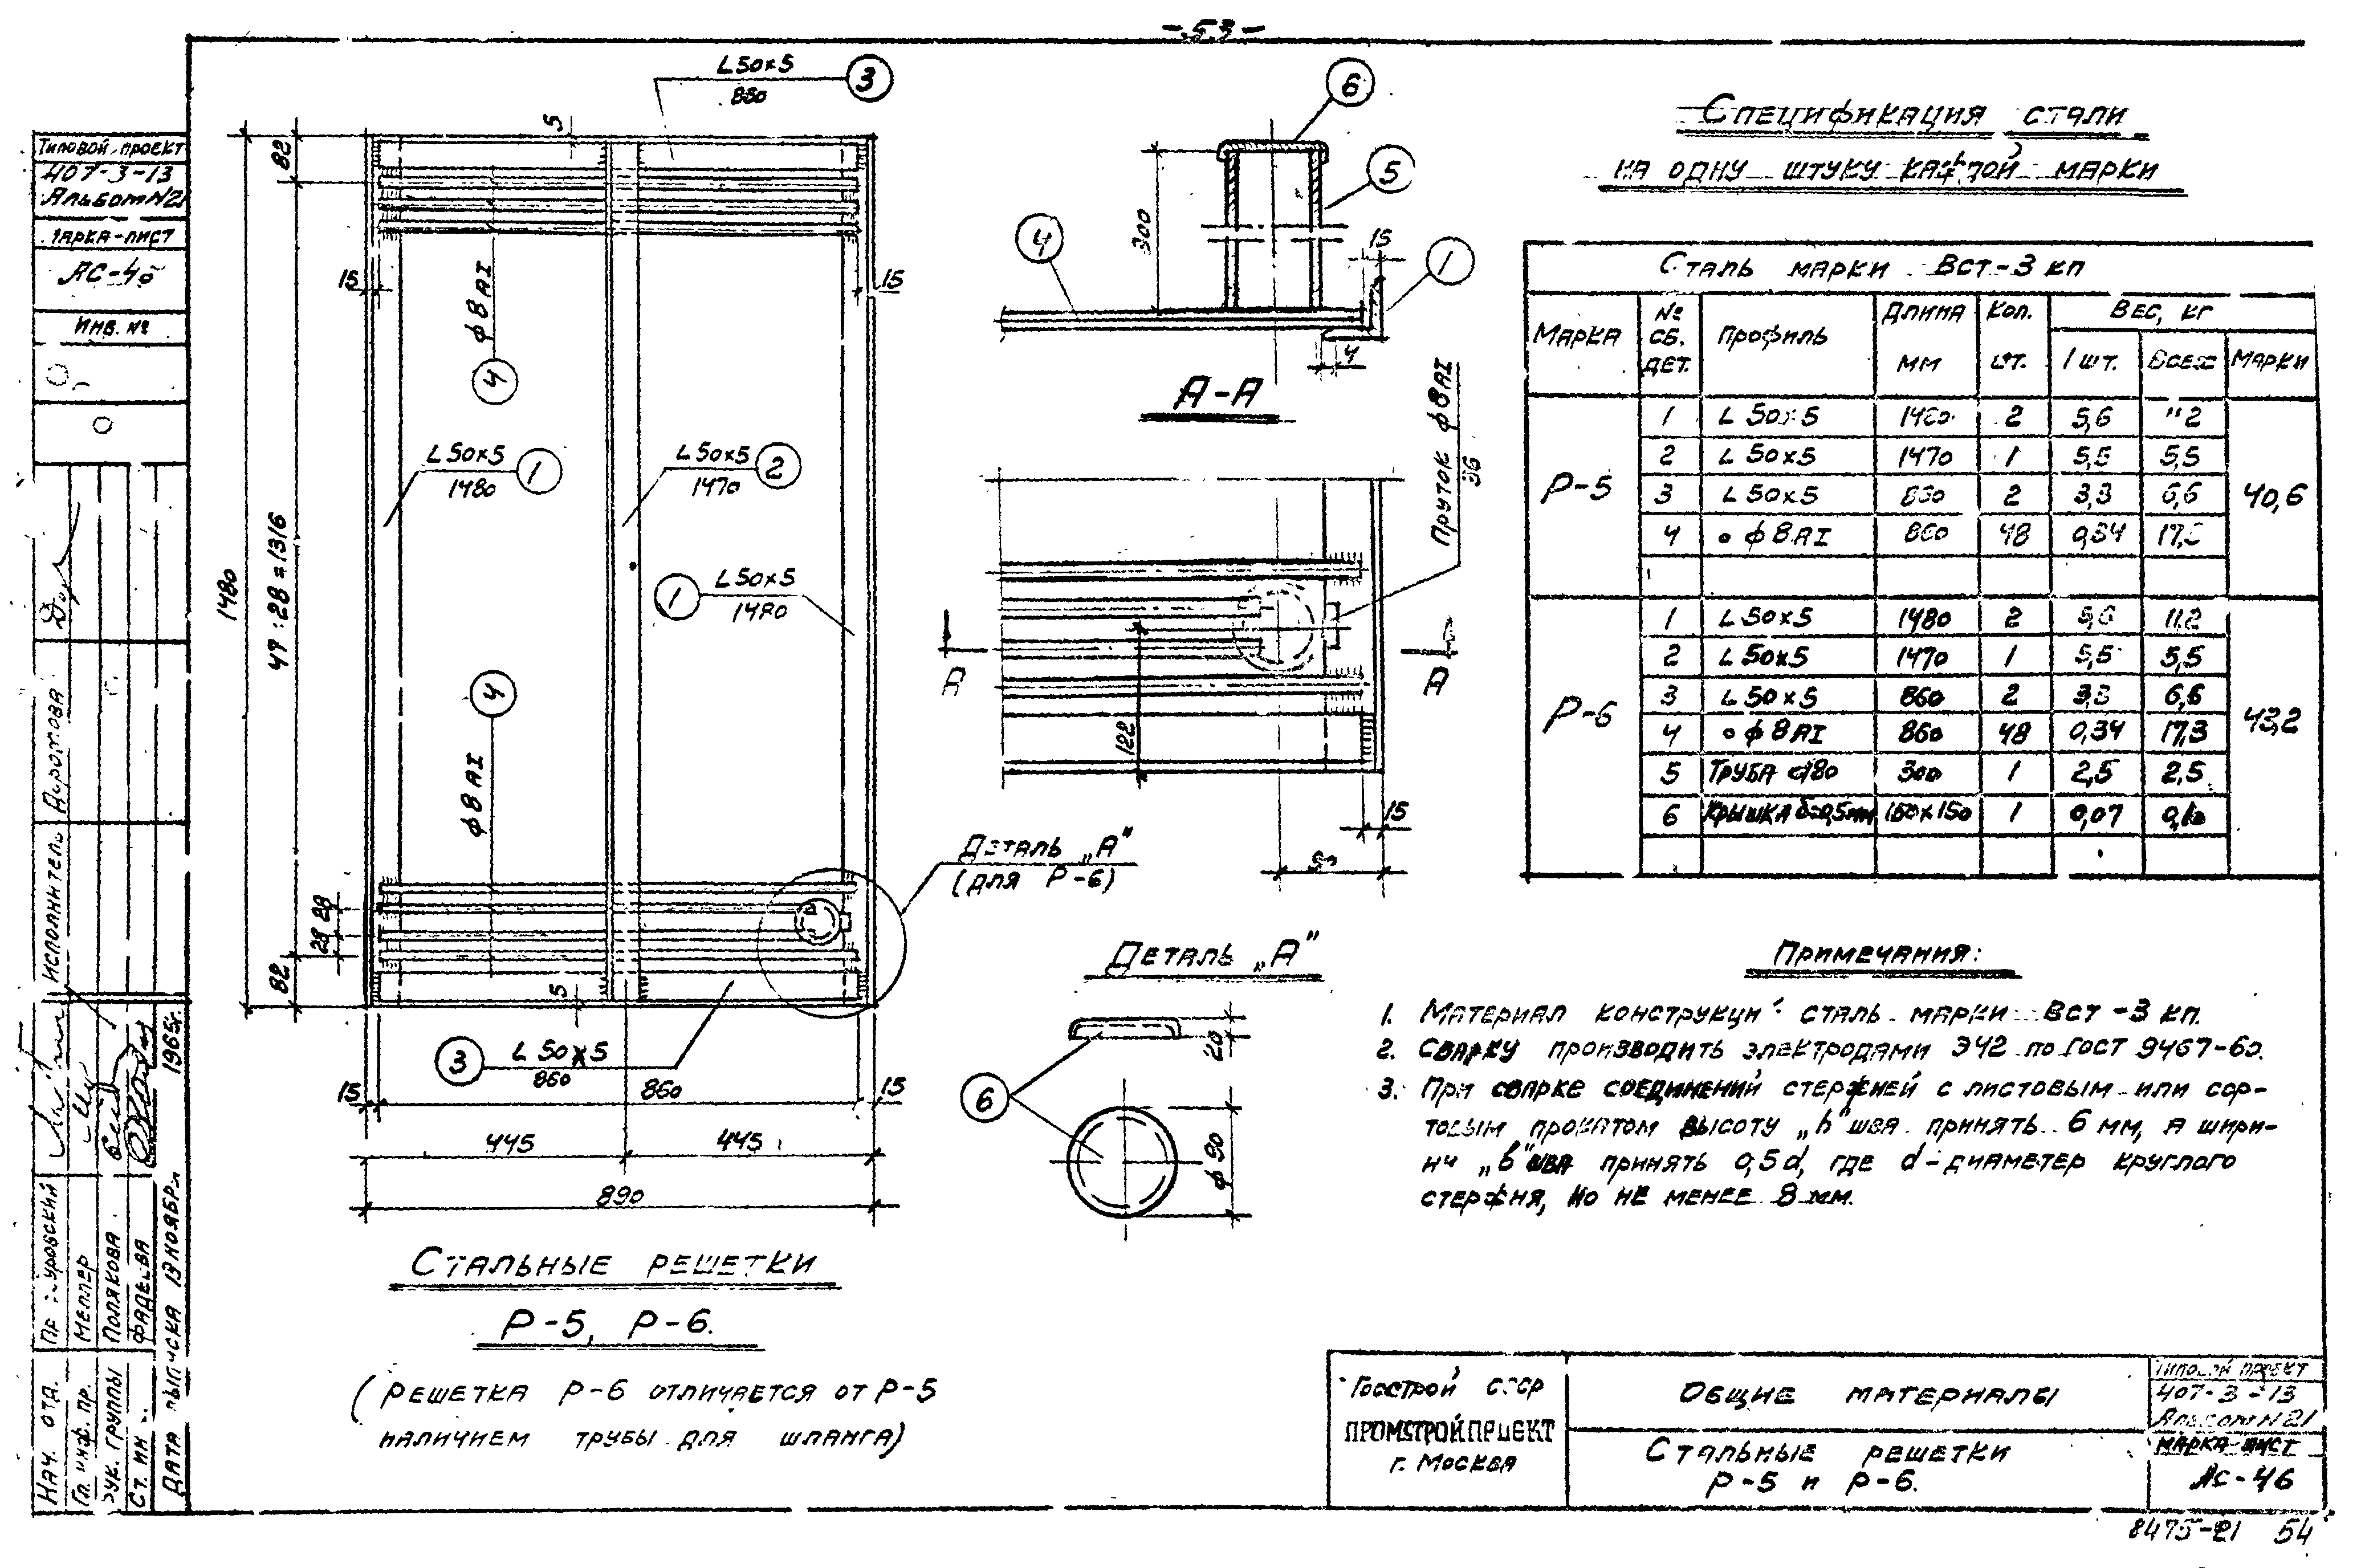 -53-
Типовой проект
407-3-13
Альбом №21
Марка-лист
АС-46
Инв. №
L50×5
860
3
5
82
15
15
ф8АI
4
L50×5
1480
1
L50×5
1470
2
1
L50×5
1480
1480
47×28=1316
4
ф8АI
28 28
82
5
3
L50×5
860
15
860
15
445
445
890
Деталь „А"
(для Р-6)
Стальные решетки
Р-5, Р-6.
(Решетка Р-6 отличается от Р-5
наличием трубы для шланга)
6
5
4
1
300
15
4
А-А
Пруток ф8АI
36
А
А
122
15
50
Деталь „А"
20
6
ф90
Спецификация стали
на одну штуку каждой марки
Сталь марки Вст-3 кп
Марка № сб. дет. Профиль Длина мм Кол. шт. Вес, кг
1 шт. Всех Марки
Р-5 40,6
1 L50×5 1480 2 5,6 11,2
2 L50×5 1470 1 5,5 5,5
3 L50×5 860 2 3,3 6,6
4 ∘ф8АI 860 48 0,34 17,3
Р-6 43,2
1 L50×5 1480 2 5,6 11,2
2 L50×5 1470 1 5,5 5,5
3 L50×5 860 2 3,3 6,6
4 ∘ф8АI 860 48 0,34 17,3
5 Труба d80 300 1 2,5 2,5
6 Крышка δ=0,5мм 150×150 1 0,07
Примечания:
1. Материал конструкций сталь марки Вст-3 кп.
2. Сварку производить электродами Э42 по ГОСТ 9467-60.
3. При сварке соединений стержней с листовым или сор-
товым прокатом высоту „h" шва принять 6 мм, а шири-
ну „b" шва принять 0,5d, где d-диаметер круглого
стержня, но не менее 8 мм.
Госстрой СССР
ПРОМСТРОЙПРОЕКТ
г. Москва
Общие материалы
Стальные решетки
Р-5 и Р-6.
Типовой проект
407-3-13
Альбом №21
Марка-лист
АС-46
8475-21 54
Исполнитель
Нач. отд.
Гл. инж. пр. Меллер
Рук. группы Полякова
Ст. инж. Фадеева
Дата выпуска 13 ноября 1965г.